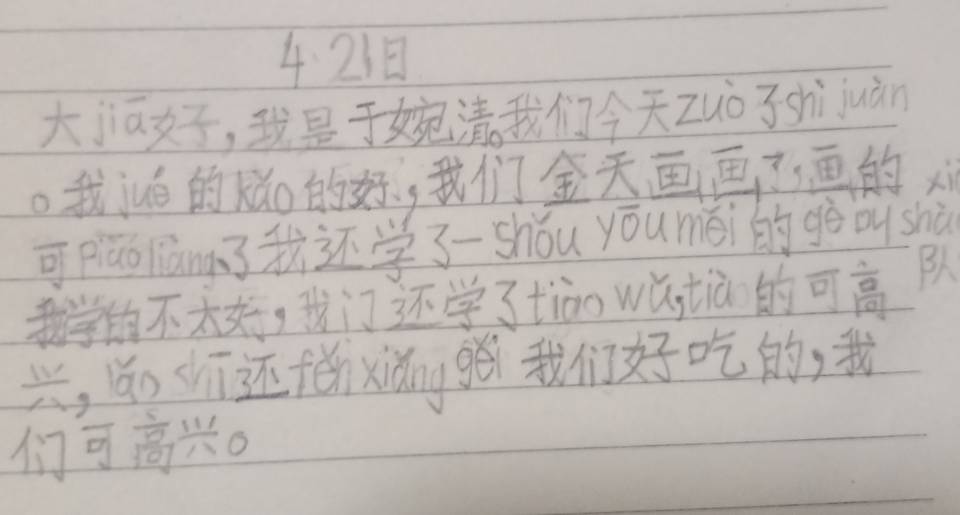 4.21日
大jiā好，我是于婉清。我们今天zuò了shì juàn
。我jué的kǎo的好，我们金天画画了，画的
可piào liàng了我还学了一shǒu yōu měi的gē
我学的不太好，我门还学了tiào wǔ，tiào的可高
兴，lǎo shī还fēn xiǎng gěi我们好吃的，我
们可高兴。